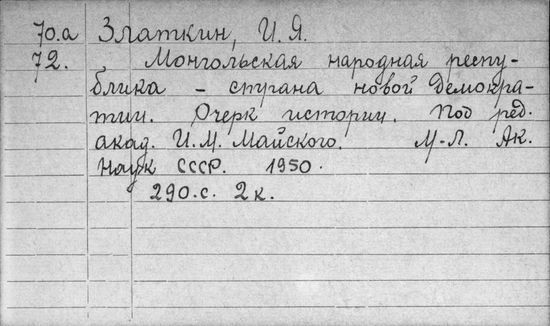 70.а Златкин, И.Я.
72. Монгольская народная респу-
блика – стугана новой демокра-
тии. Очерк истории. Под ред.
акад. И.М. Майского. М-Л. Ак.
Наук СССР. 1950.
290.с. 2 к.